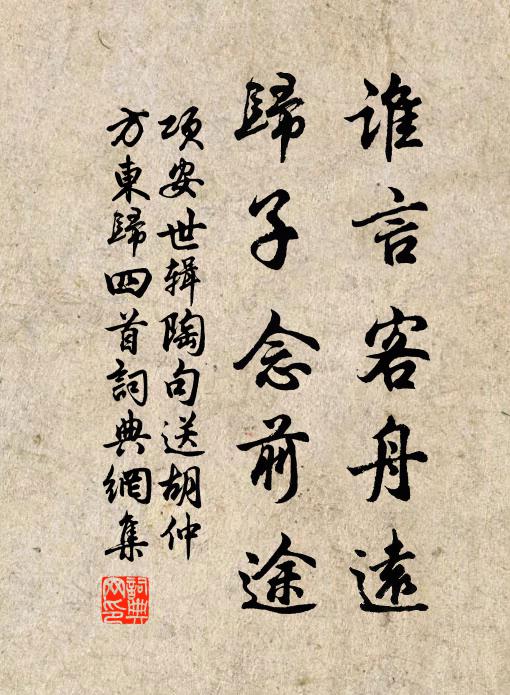 誰言客舟遠
歸子念前途
项安世辑陶句送胡仲
方東歸四首詞典網集
詞典網印